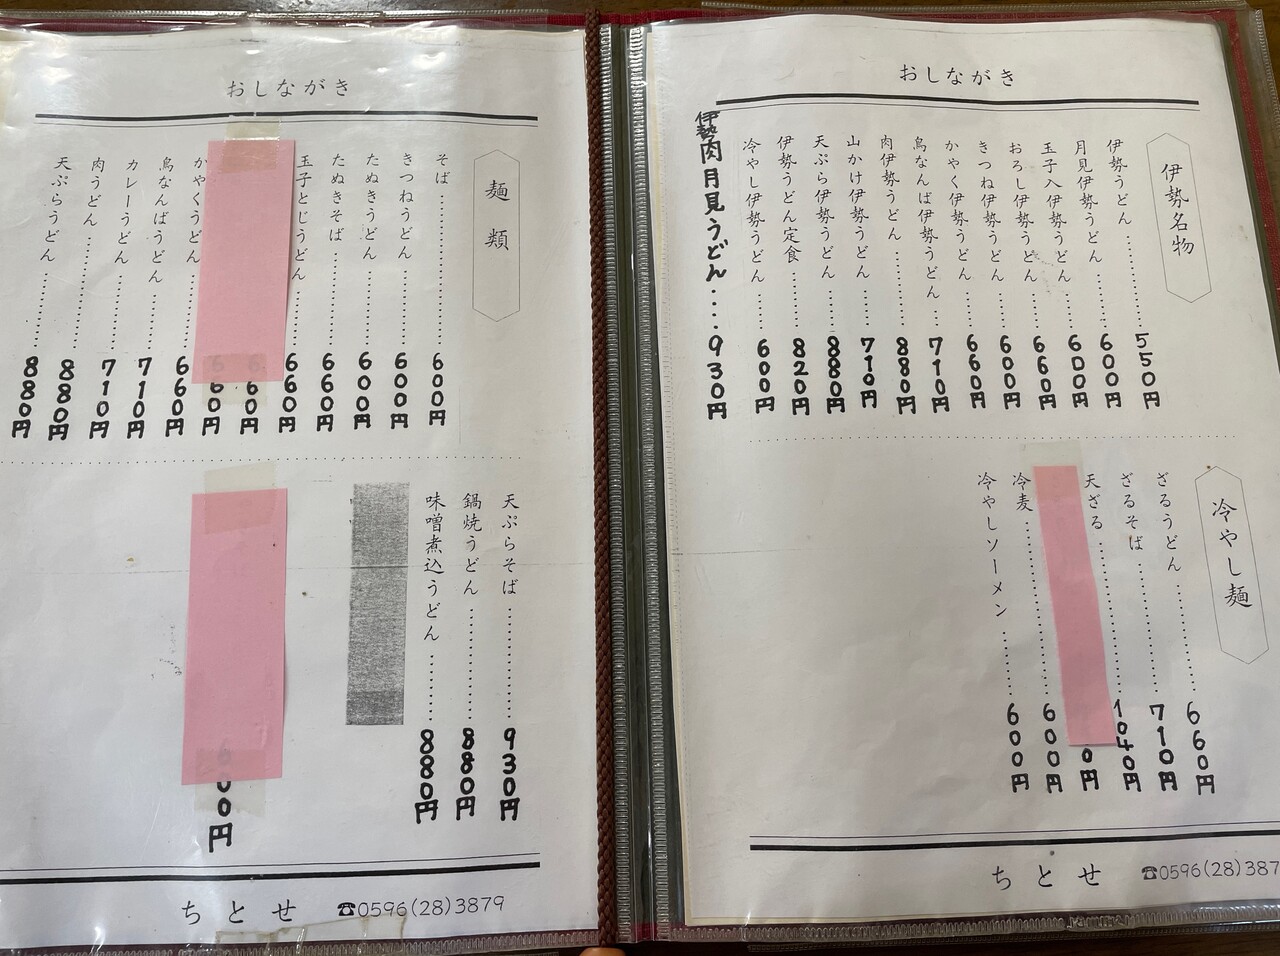 おしながき
伊勢名物
伊勢うどん…………550円
月見伊勢うどん………600円
玉子入伊勢うどん……600円
おろし伊勢うどん……660円
きつね伊勢うどん……600円
かやく伊勢うどん……660円
鳥なんば伊勢うどん…710円
肉伊勢うどん…………880円
山かけ伊勢うどん……710円
天ぷら伊勢うどん……880円
伊勢うどん定食………820円
冷やし伊勢うどん……600円
伊勢肉月見うどん....930円
冷やし麺
ざるうどん…………660円
ざるそば……………710円
天ざる………………1040円
0円
冷麦…………………600円
冷やしソーメン………600円
ちとせ ☎0596(28)387
おしながき
麺類
そば…………………600円
きつねうどん…………600円
たぬきうどん…………600円
たぬきそば……………660円
玉子とじうどん………660円
660円
660円
かやくうどん…………660円
鳥なんばうどん………710円
カレーうどん…………710円
肉うどん………………880円
天ぷらうどん…………880円
天ぷらそば……………930円
鍋焼うどん……………880円
味噌煮込うどん………880円
600円
ちとせ ☎0596(28)3879